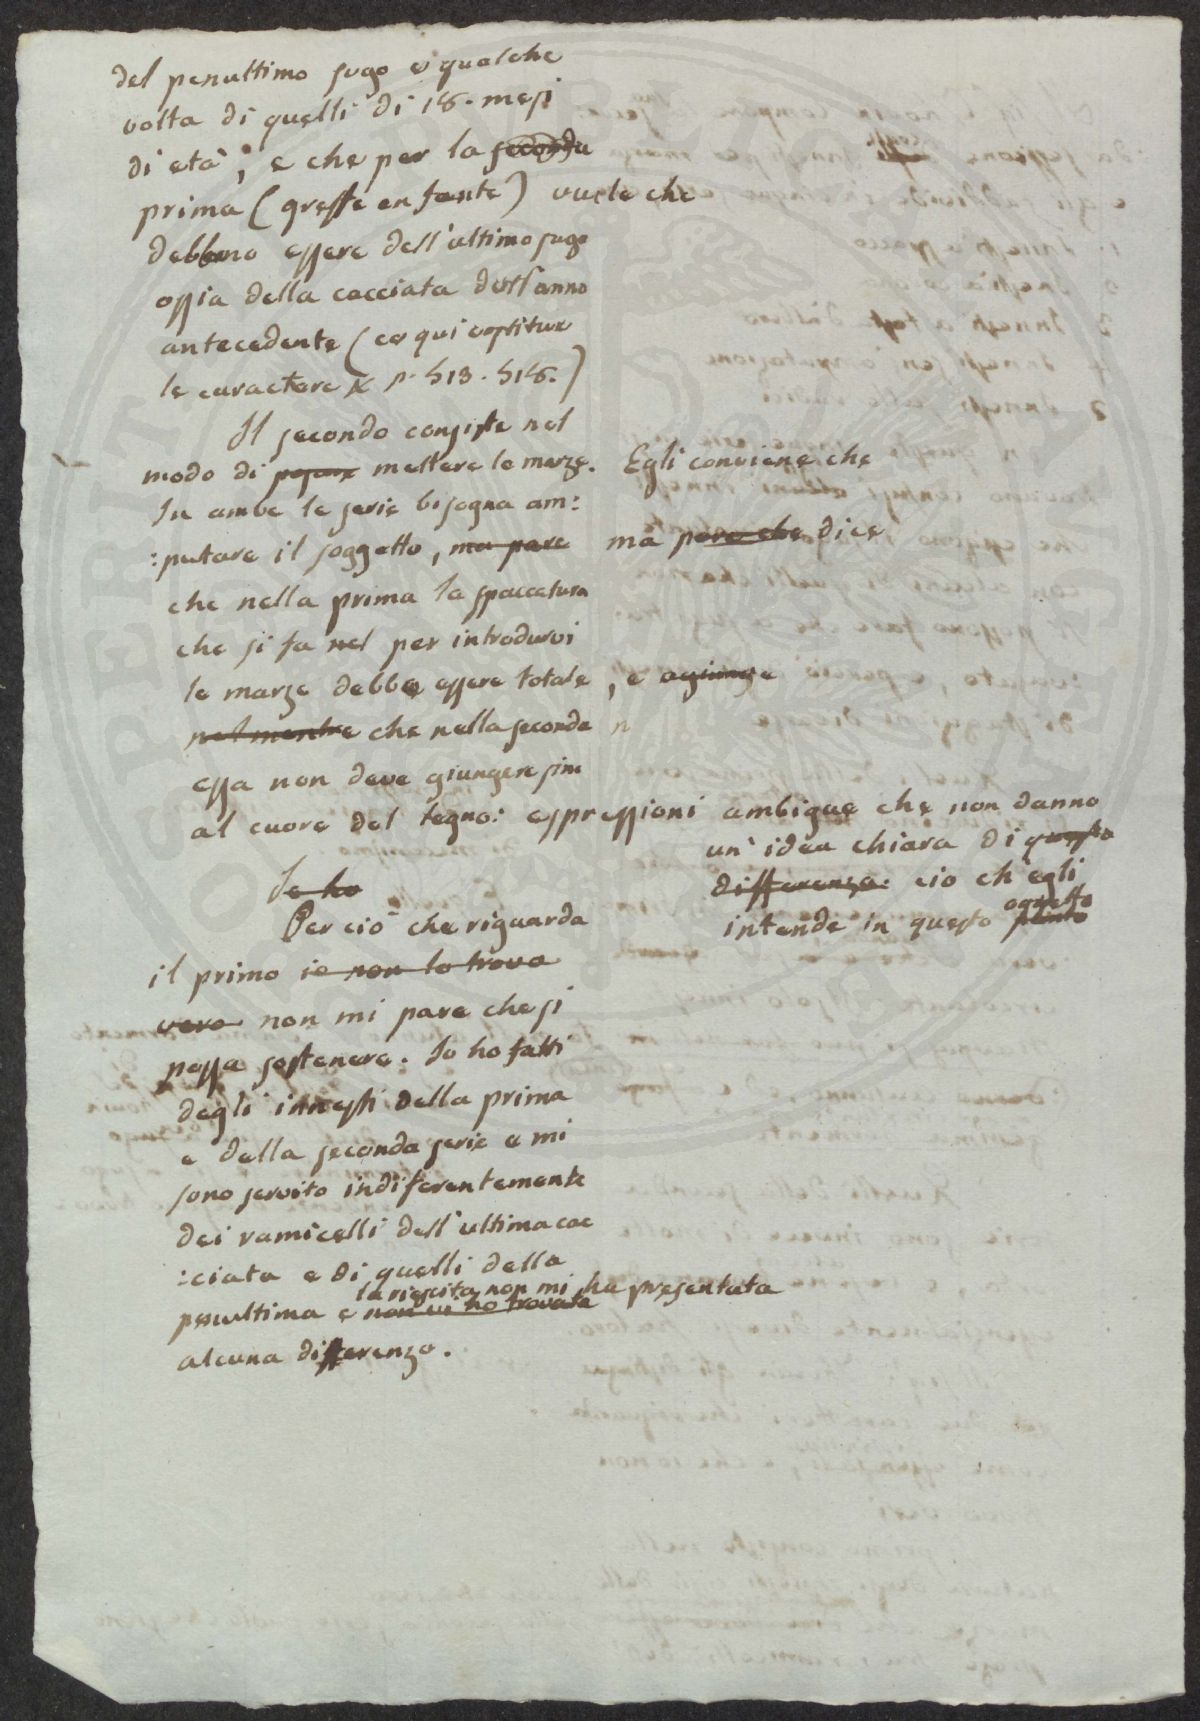 del penultimo sugo e qualche
volta di quelli di 18. mesi
di età, e che per la seconda
prima (greffe en fente) vuole che
debbano essere dell'ultimo sugo
ossia della cacciata dell'anno
antecedente (ce qui constitue
le caractere p. 513. 518.)
Il secondo consiste nel
modo di posare mettere le marze. Egli conviene che
In ambe le serie bisogna am:
:putare il soggetto, ma pare ma pare che dice
che nella prima la spaccatura
che si fa nel per introdurvi
le marze debba essere totale, e agiunge
nel mentre che nella seconda n
essa non deve giungere sino
al cuore del legno: espressioni ambigue che non danno
un' idea chiara di questa
differenza: ciò ch'egli
intende in questo oggetto punto
Io ho
Per ciò che riguarda
il primo io non lo trovo
vero non mi pare che si
possa sostenere. Io ho fatti
degli innesti della prima
e della seconda serie e mi
sono servito indiferentemente
dei ramicelli dell'ultima cac
:ciata e di quelli della
la riescita non mi ha presentata
penultima e non vi ho trovata
alcuna differenza.